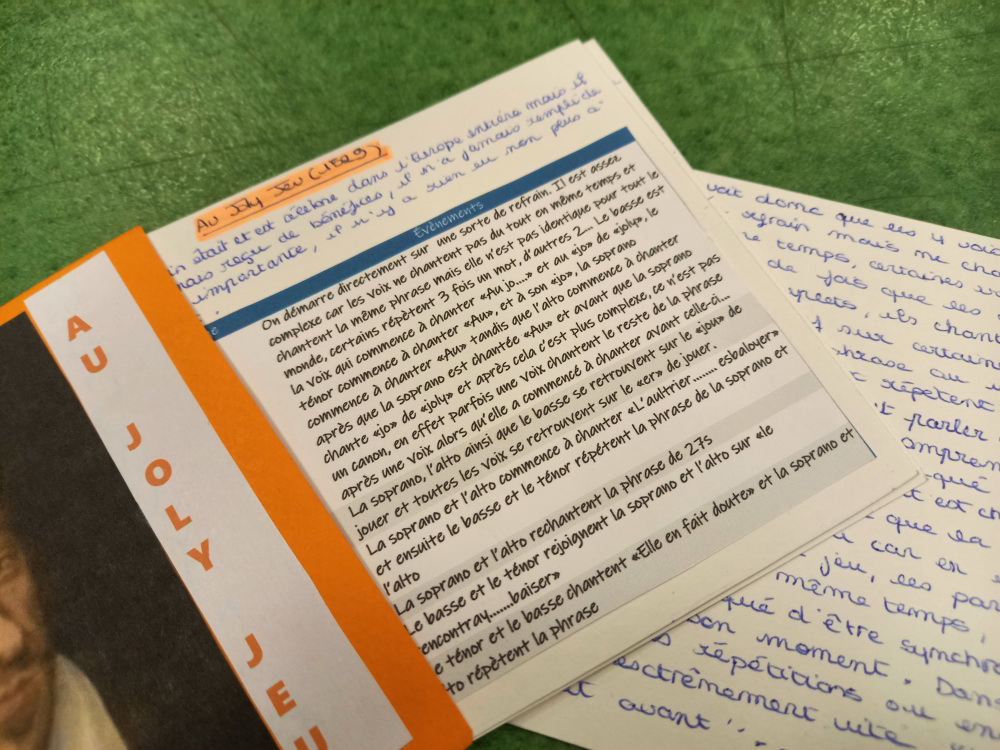 AU JOLY JEU
Au Joly Jeu (1529)
était et est célèbre dans l'Europe entière mais il
reçu de bénéfices, il n'a jamais rempli de
importance, il n'y a rien eu non plus a
Événements
e
On démarre directement sur une sorte de refrain. Il est assez
complexe car les voix ne chantent pas du tout en même temps et
chantent la même phrase mais elle n'est pas identique pour tout le
monde, certains répètent 3 fois un mot, d'autres 2... Le basse est
la voix qui commence à chanter «Au jo...» et au «jo» de «joly», le
ténor commence à chanter «Au», et à son «jo», la soprano
commence à chanter «Au» tandis que l'alto commence à chanter
après que la soprano est chantée «Au» et avant que la soprano
chante «jo» de «joly» et après cela c'est plus complexe, ce n'est pas
un canon, en effet parfois une voix chantent le reste de la phrase
après une voix alors qu'elle a commencé à chanter avant celle-ci...
La soprano, l'alto ainsi que le basse se retrouvent sur le «jou» de
jouer et toutes les voix se retrouvent sur le «er» de jouer.
La soprano et l'alto commence à chanter «L'autrier....... esbaloyer»
et ensuite le basse et le ténor répètent la phrase de la soprano et
l'alto
La soprano et l'alto rechantent la phrase de 27s
Le basse et le ténor rejoignent la soprano et l'alto sur «le
encontray......baiser»
e ténor et le basse chantent «Elle en fait doute» et la soprano et
to répètent la phrase
voit donc que les 4 voix
refrain mais ne cha
temps, certaines
de fois que les
ils chant
sur certain
phrase au
répètent
parler
compren
qué
t est ch
que sa
car en
jeu, les par
même temps,
qué d'être synchro
son moment. Dans
répétitions ou en
extrêmement vite
avant